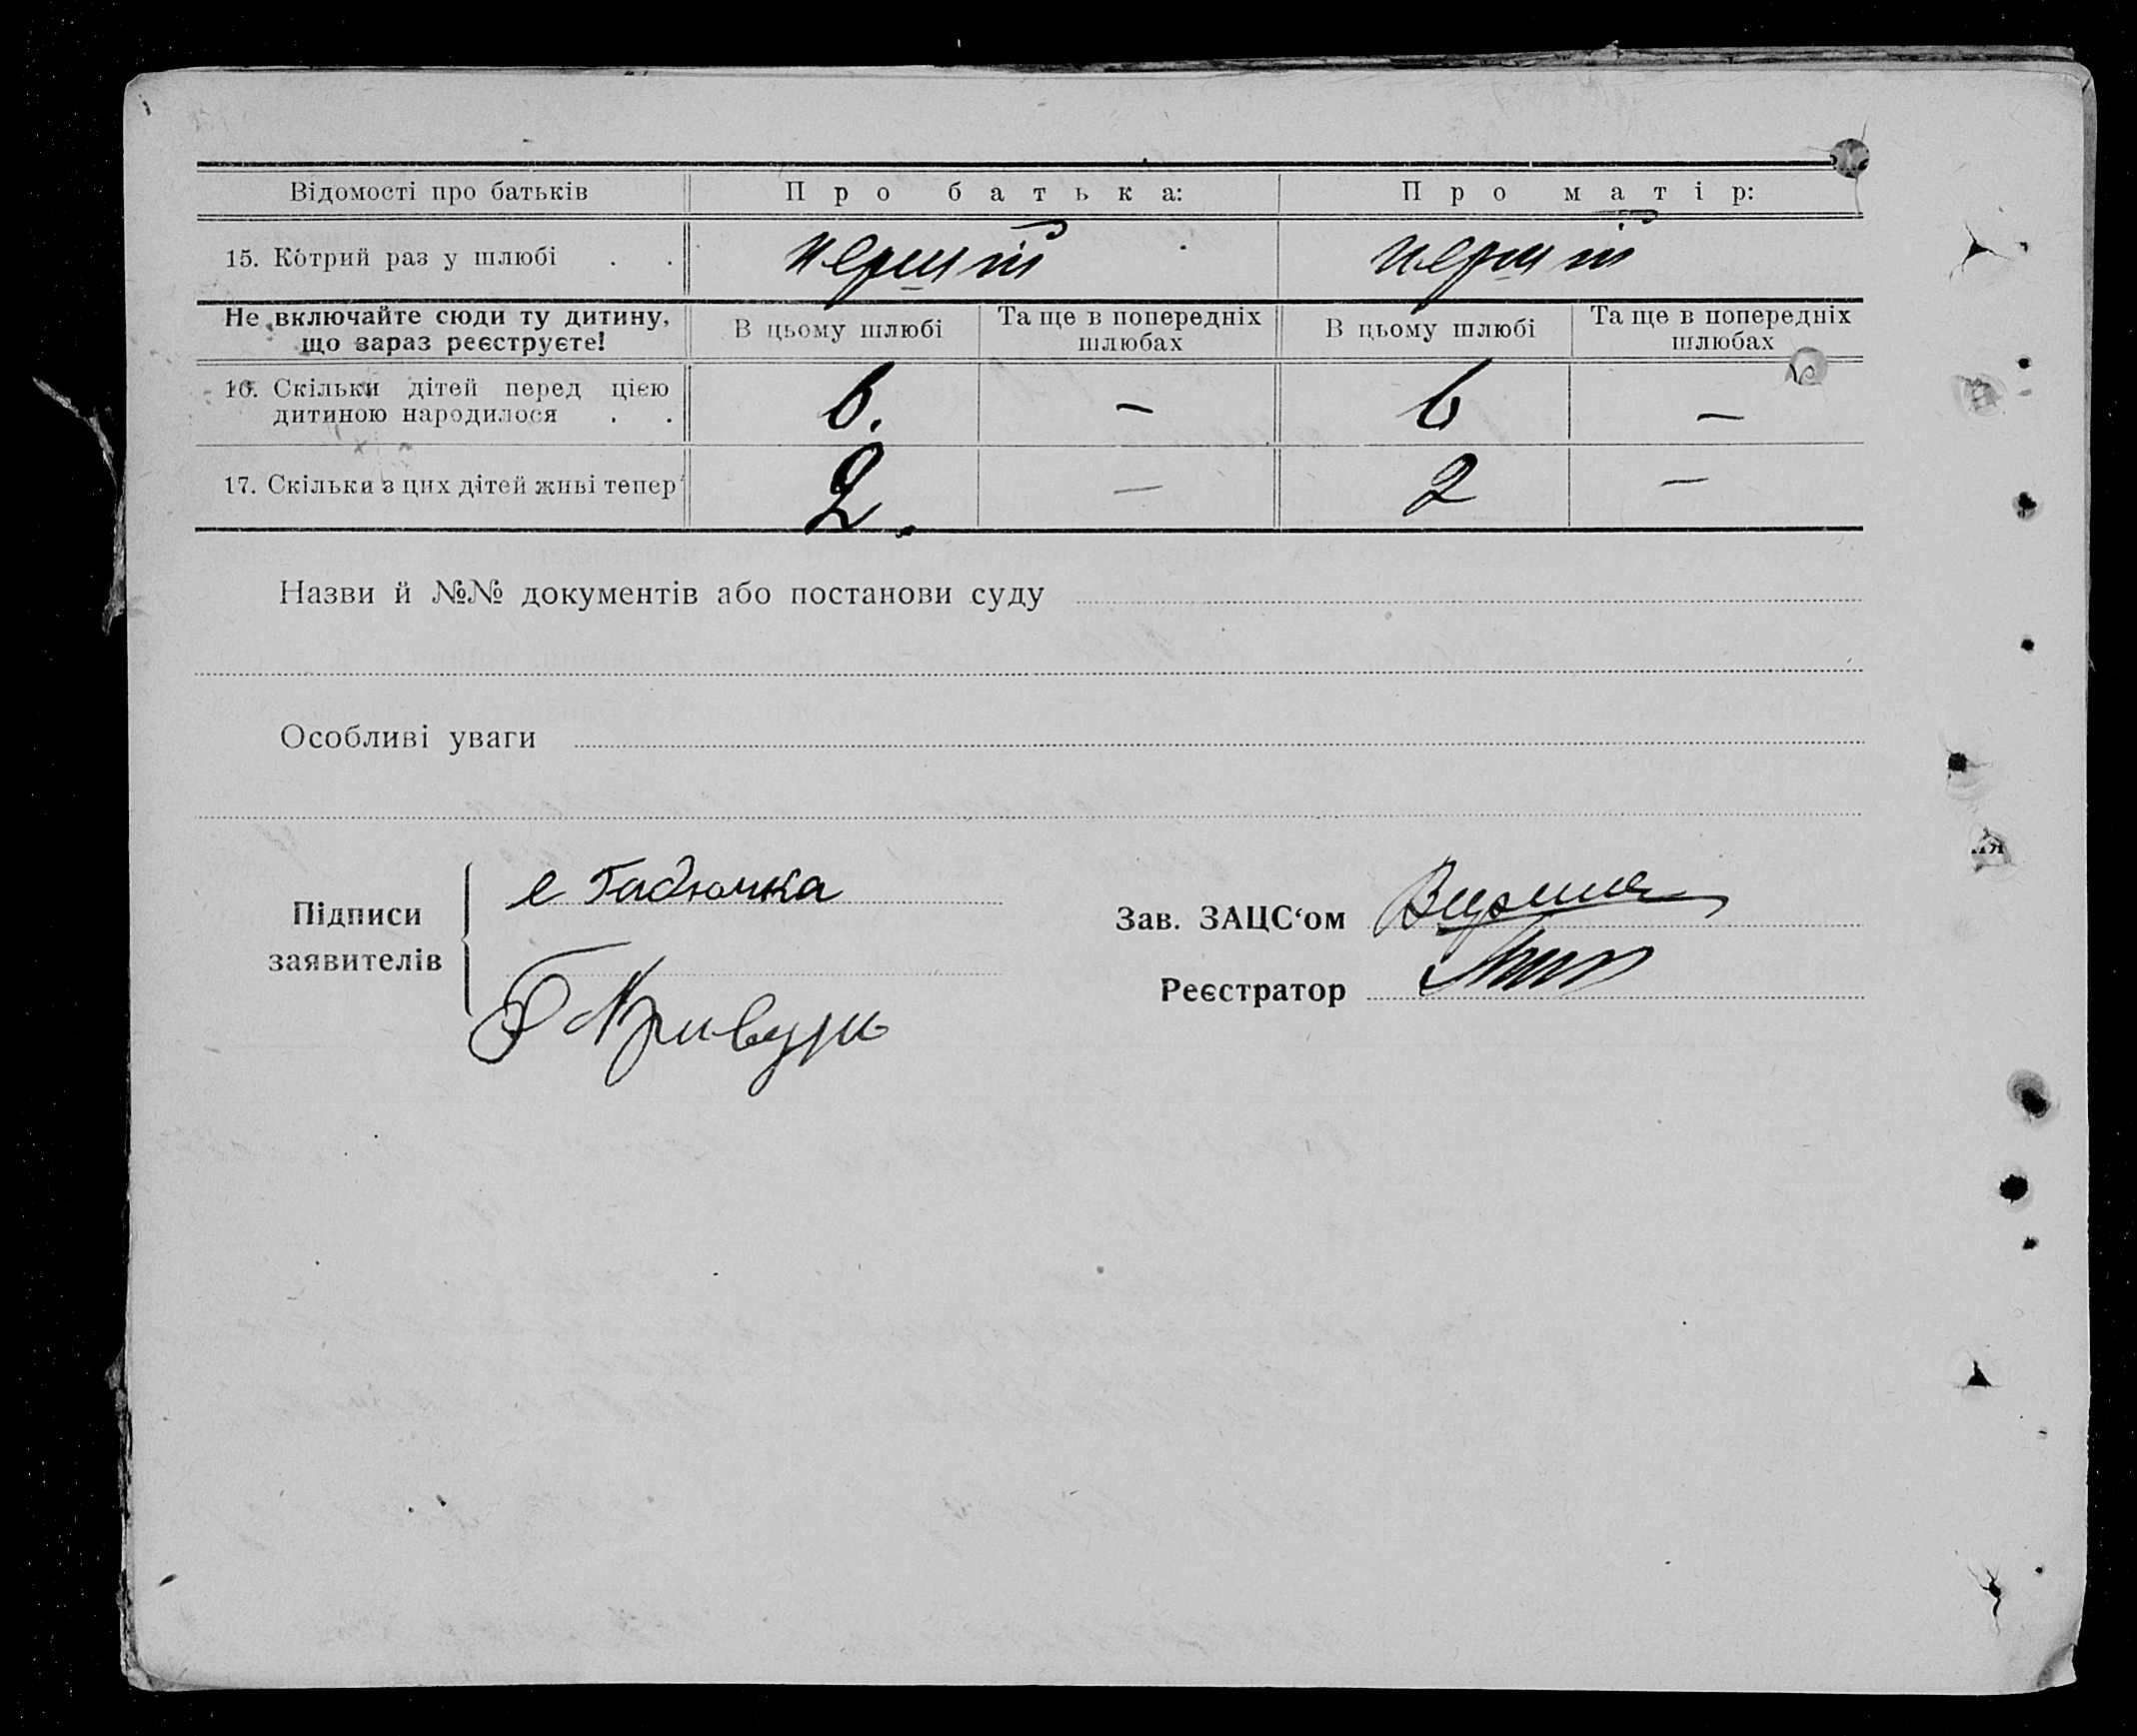 Відомості про батьків Про батька: Про матір:
15. Котрий раз у шлюбі . . перший перший
Не включайте сюди ту дитину, що зараз реєструєте! В цьому шлюбі Та ще в попередніх шлюбах В цьому шлюбі Та ще в попередніх шлюбах
16. Скільки дітей перед цією
дитиною народилося . . 6. – 6 –
17. Скільки з цих дітей живі тепер 2. – 2 –
Назви й №№ документів або постанови суду
Особливі уваги
Підписи
заявителів
е Гадючка
Зав. ЗАЦС‘ом
Реєстратор